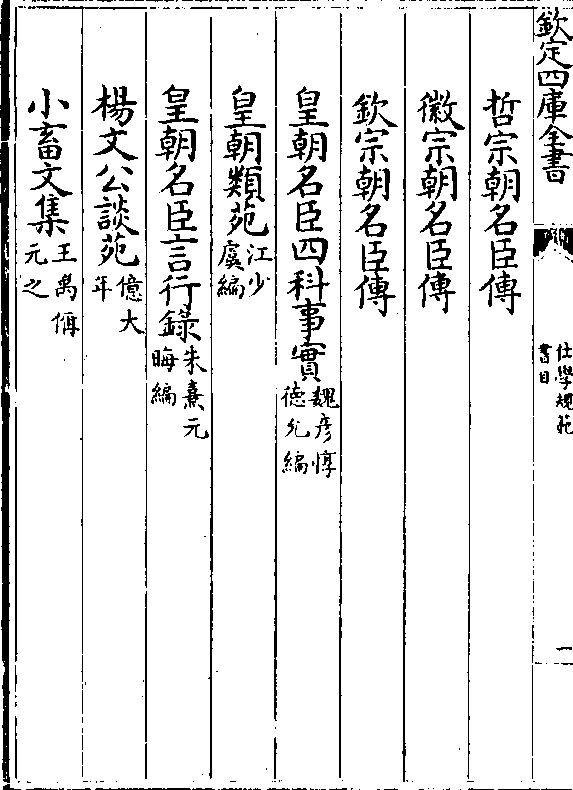 欽定四庫全書
仕學規範
書目
一
哲宗朝名臣傳
徽宗朝名臣傳
欽宗朝名臣傳
皇朝名臣四科事實魏彦惇
德允編
皇朝類苑江少
虞編
皇朝名臣言行錄朱熹元
晦編
楊文公談苑億大
年
小畜文集王禹偁
元之